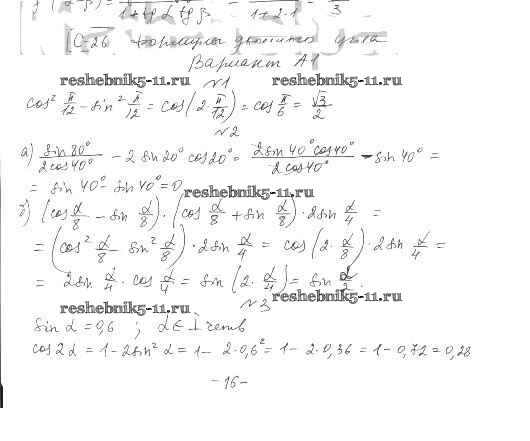 1+tg α tg β 1+2·1 3
С-26 Формулы двойного угла
Вариант А1
reshebnik5-11.ru №1
cos² π/12 - sin² π/12 = cos(2·π/12) = cos π/6 = √3/2
№2
а) sin 80°/2cos 40° - 2 sin 20° cos 20° = 2sin 40° cos 40°/2 cos 40° - sin 40° =
= sin 40° - sin 40° = 0 reshebnik5-11.ru
б) (cos α/8 - sin α/8)·(cos α/8 + sin α/8)·2sin α/4 =
= (cos² α/8 - sin² α/8)·2sin α/4 = cos(2·α/8)·2sin α/4 =
= 2sin α/4·cos α/4 = sin(2·α/4) = sin α/2.
reshebnik5-11.ru №3 reshebnik5-11.ru
sin α = 0,6 ; α ∈ I четв
cos 2α = 1 - 2sin² α = 1 - 2·0,6² = 1 - 2·0,36 = 1 - 0,72 = 0,28
-16-